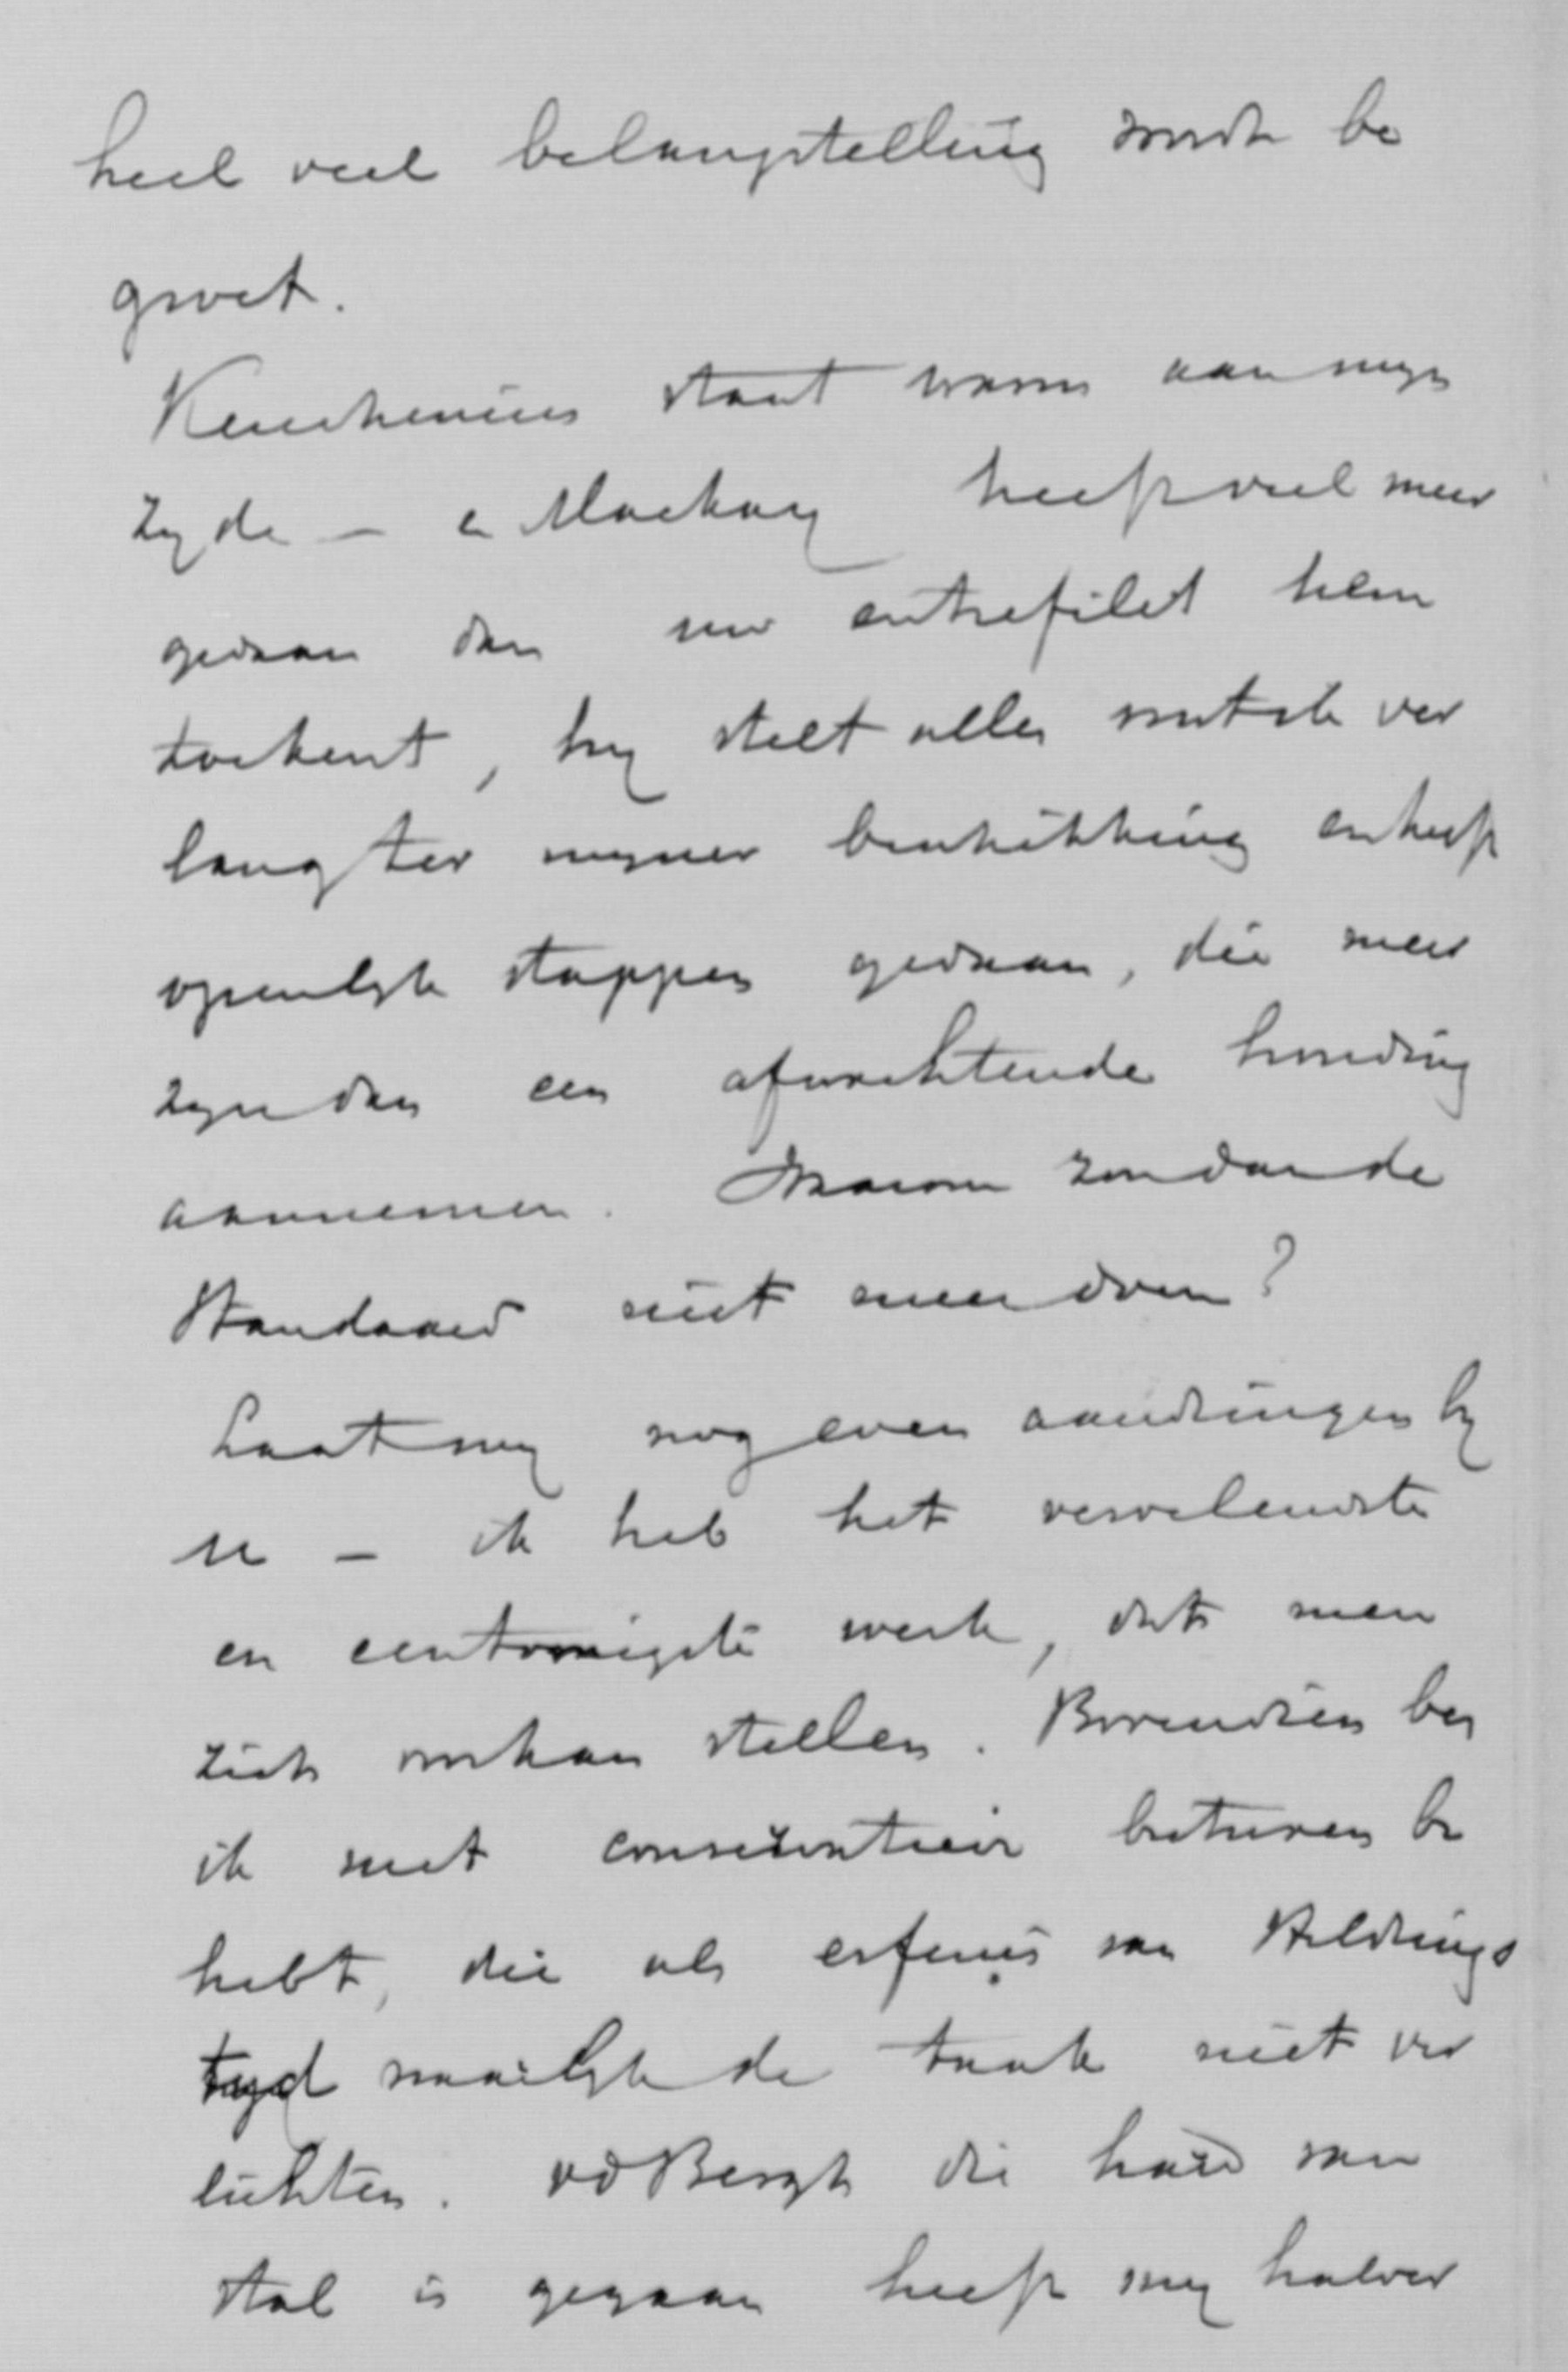 heel veel belangstelling wordt be
groet.
Keuchenius staat warm aan myn
zyde – en Mackay heeft veel meer
gedaan dan uw entrefilet hem
toekent, hy stelt alles wat ik ver
lang ter myner beschikking en heeft
openlyk stappen gedaan, die meer
zyn dan een afwachtende houding
aannemen. Waarom zou dan de
Standaard niet meer doen?
Laat my nog even aandringen by
U – ik heb het vervelendste
en eentonigste werk, dat men
zich voor kan stellen. Borendien heb
ik met conscientieu besturen be
hebt, die als erfenis van Heldrings
tyd moeilyk de taak niet ver
lichten. vd Bergh die haard van
stal is gegaan heeft my halver